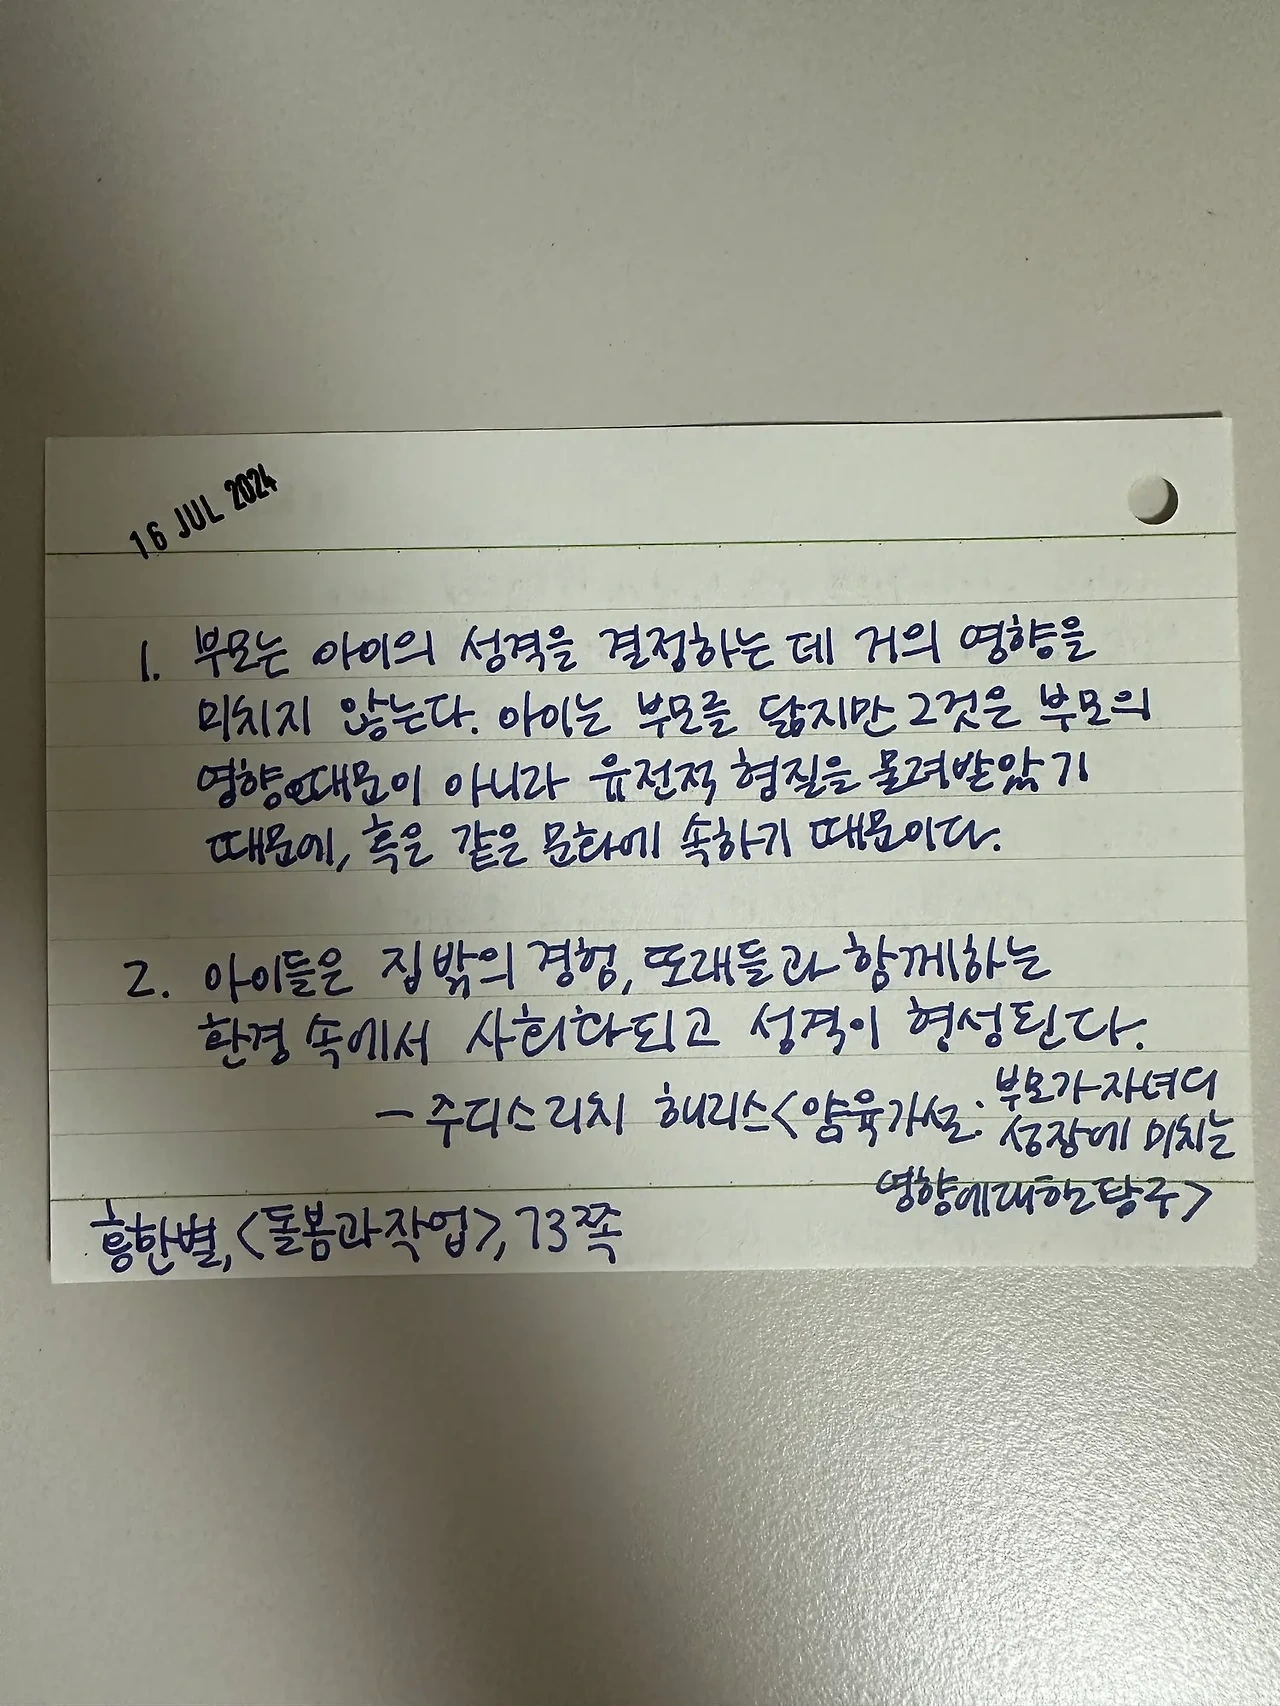 16 JUL 2024
1. 부모는 아이의 성격을 결정하는 데 거의 영향을
미치지 않는다. 아이는 부모를 닮지만 그것은 부모의
영향 때문이 아니라 유전적 형질을 물려받았기
때문에, 혹은 같은 문화에 속하기 때문이다.
2. 아이들은 집 밖의 경험, 또래들과 함께하는
환경 속에서 사회화되고 성격이 형성된다.
— 주디스 리치 해리스 <양육가설: 부모가 자녀의
성장에 미치는
영향에 대한 탐구>
홍한별, <돌봄과 작업>, 73쪽